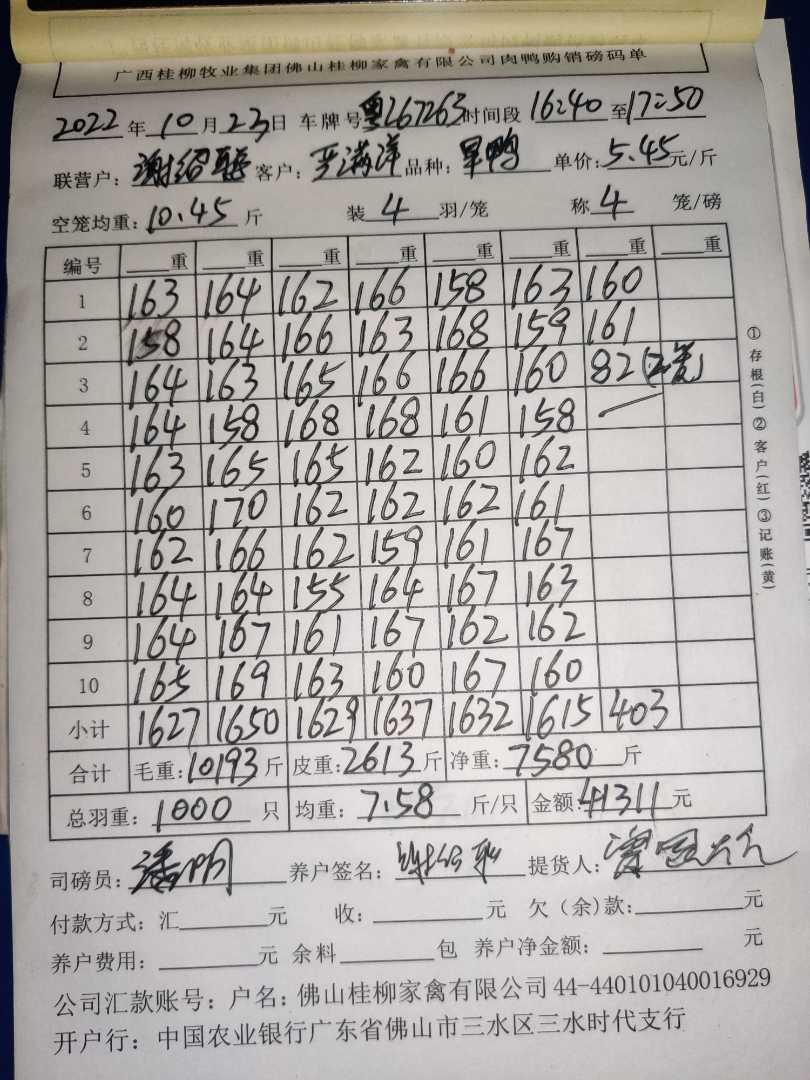 广西桂柳牧业集团佛山桂柳家禽有限公司肉鸭购销磅码单
2022年10月23日 车牌号粤L67263时间段16:40至17:50
联营户:谢绍联 客户:严满洋 品种:旱鸭 单价:5.45元/斤
空笼均重:10.45斤 装4羽/笼 称4笼/磅
编号 重 重 重 重 重 重 重 重
1 163 164 162 166 158 163 160
2 158 164 166 163 168 159 161
3 164 163 165 166 166 160 82(2笼)
4 164 158 168 168 161 158 —
5 163 165 165 162 160 162
6 160 170 162 162 162 161
7 162 166 162 159 161 167
8 164 164 155 164 167 163
9 164 167 161 167 162 162
10 165 169 163 160 167 160
小计 1627 1650 1629 1637 1632 1615 403
合计 毛重:10193斤 皮重:2613斤 净重:7580斤
总羽重:1000只 均重:7.58斤/只 金额:41311元
司磅员:潘明 养户签名: 提货人:
付款方式:汇 元 收: 元 欠(余)款: 元
养户费用: 元 余料 包 养户净金额: 元
公司汇款账号:户名:佛山桂柳家禽有限公司44-440101040016929
开户行:中国农业银行广东省佛山市三水区三水时代支行
①存根(白)②客户(红)③记账(黄)